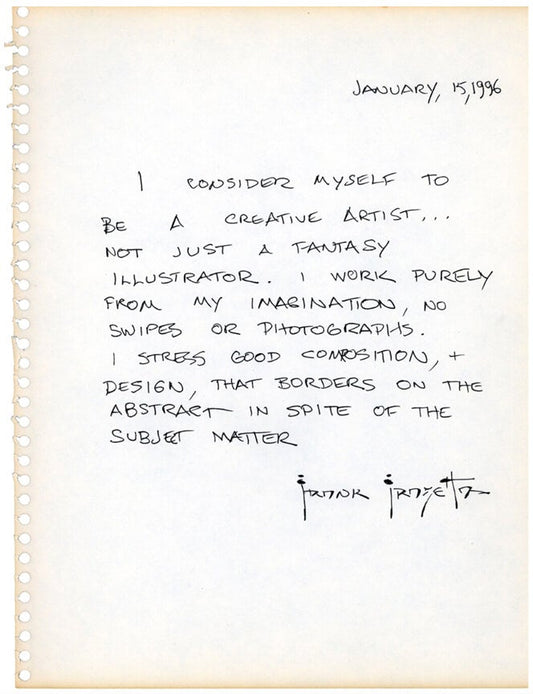 JANUARY, 15, 1996
I CONSIDER MYSELF TO
BE A CREATIVE ARTIST...
NOT JUST A FANTASY
ILLUSTRATOR. I WORK PURELY
FROM MY IMAGINATION, NO
SWIPES OR PHOTOGRAPHS.
I STRESS GOOD COMPOSITION, +
DESIGN, THAT BORDERS ON THE
ABSTRACT IN SPITE OF THE
SUBJECT MATTER
FRANK FRAZETTA